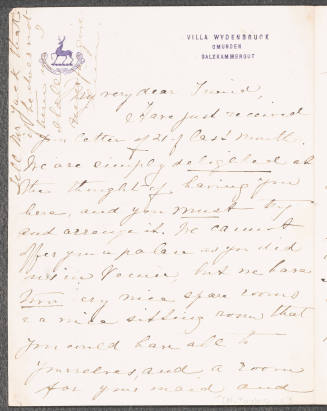 VILLA WYDENBRUCK
GMUNDEN
SALZKAMMERGUT
My very dear Friend,
I have just received
your letter of 21st of last month.
We are simply delighted at
the thought of having you
here, and you must try
and arrange it. We cannot
offer you a palace as you did
us in Vienna, but we have
two very nice spare rooms
& a nice sitting room that
you could have all to
yourselves, and a room
for your maid and
Tell Mr Jack that